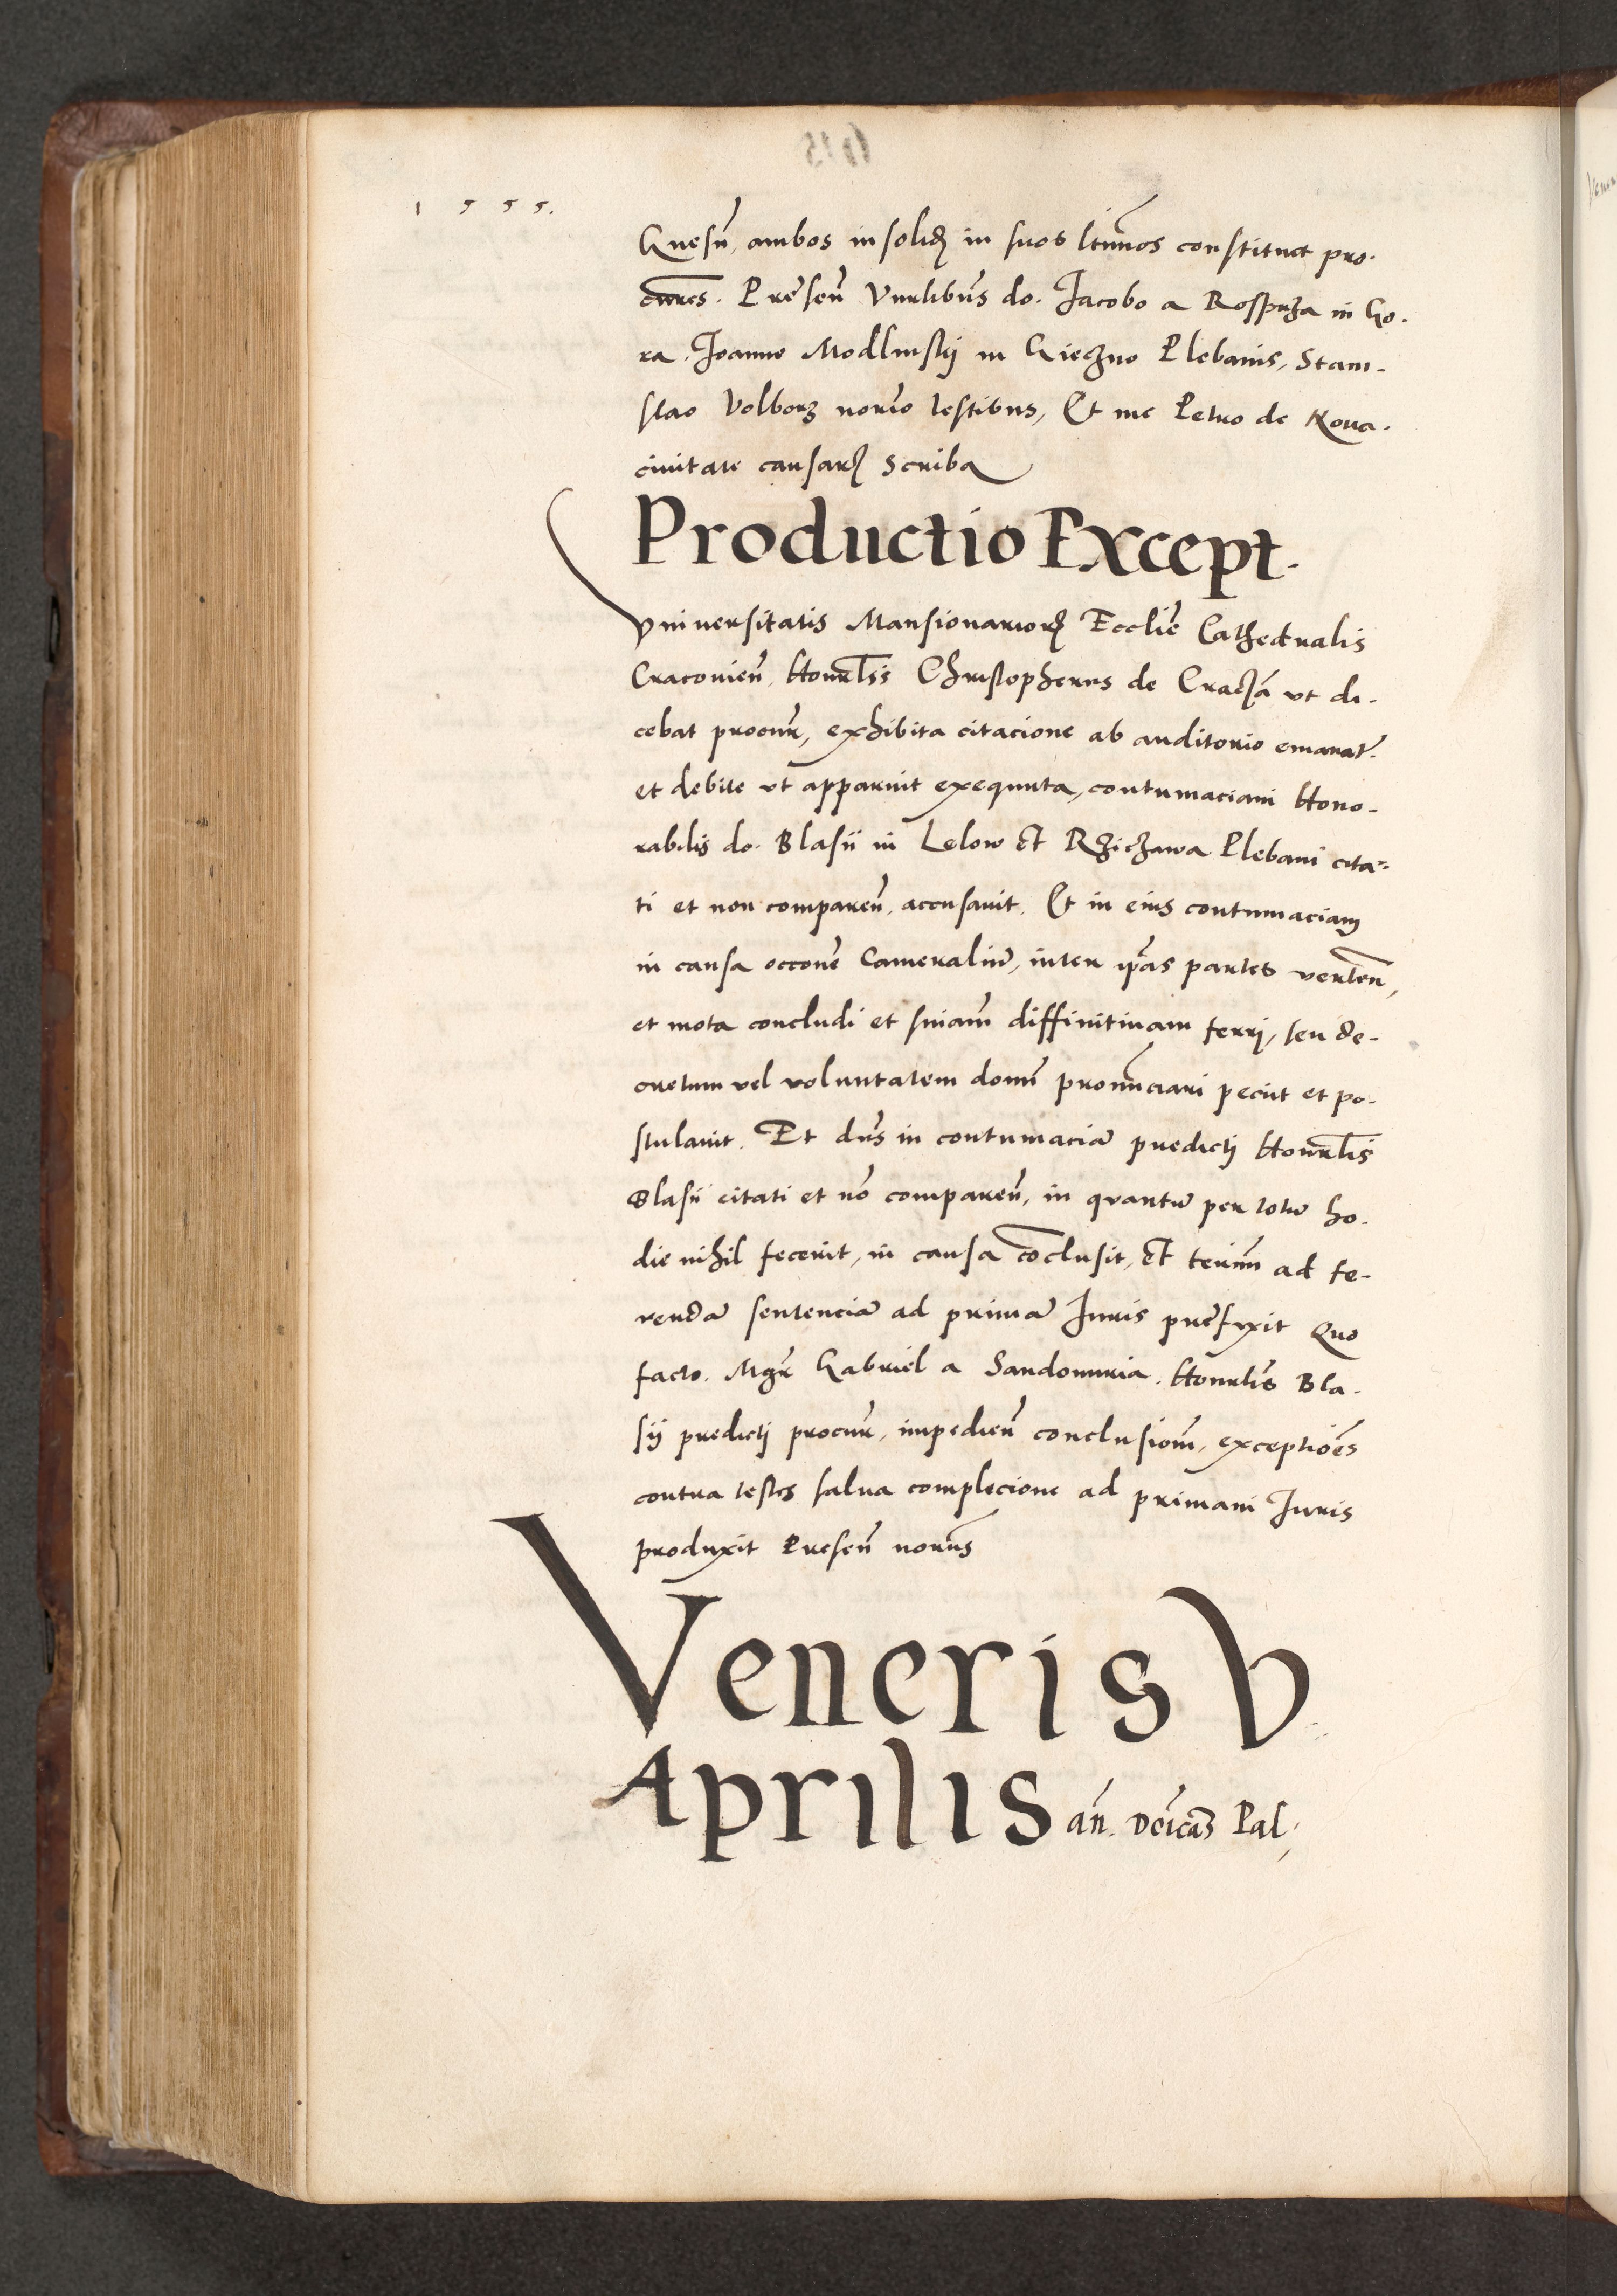 1555.
Gnesn̄, ambos in solidꝝ in suos ltimos constituit pro-
cures. Presen̄ Vnrlibus do. Jacobo a Rosprza in Go-
ra. Joanne Modlinskij in Gieczno Plebanis, Stani-
slao Volborz norio testibus, Et me Petro de Noua-
ciuitate causarꝝ Scriba
Productio Except.
Vniuersitatis Mansionariorꝝ Ecclie Cathedralis
Cracouien̄, Honrlis Christopherus de Crac̃ia vt di-
cebat procur, exhibita citacione ab auditorio emanat.
et debite vt apparuit exequuta, contumaciam Hono-
rabilis do. Blasii in Lelow et Rziczawa Plebani cita-
ti et non comparen̄, accusauit. Et in eius contumaciam
in causa occone Cameraliu, inter ipas partes verten̄,
et mota concludi et sniam diffinitiuam ferrj, seu de-
cretum vel voluntatem domi pronunciari peciit et po-
stulauit. Et dns in contumacia predictj Honrlis
Blasii citati et no comparen̄, in quantu per totu ho-
die nihil fecerit, in causa coclusit, et terim ad fe-
renda sentencia ad prima Juris prefixit Quo
facto. Mgr Gabriel a Sandomiria. Honrlis Bla-
sij predictj procur, impedien̄ conclusiom, exceptioes
contra testes salua complecione ad primam Juris
produxit Presen̄ norus
Veneris V.
Aprilis an̄. Dñicaꝫ Pal,